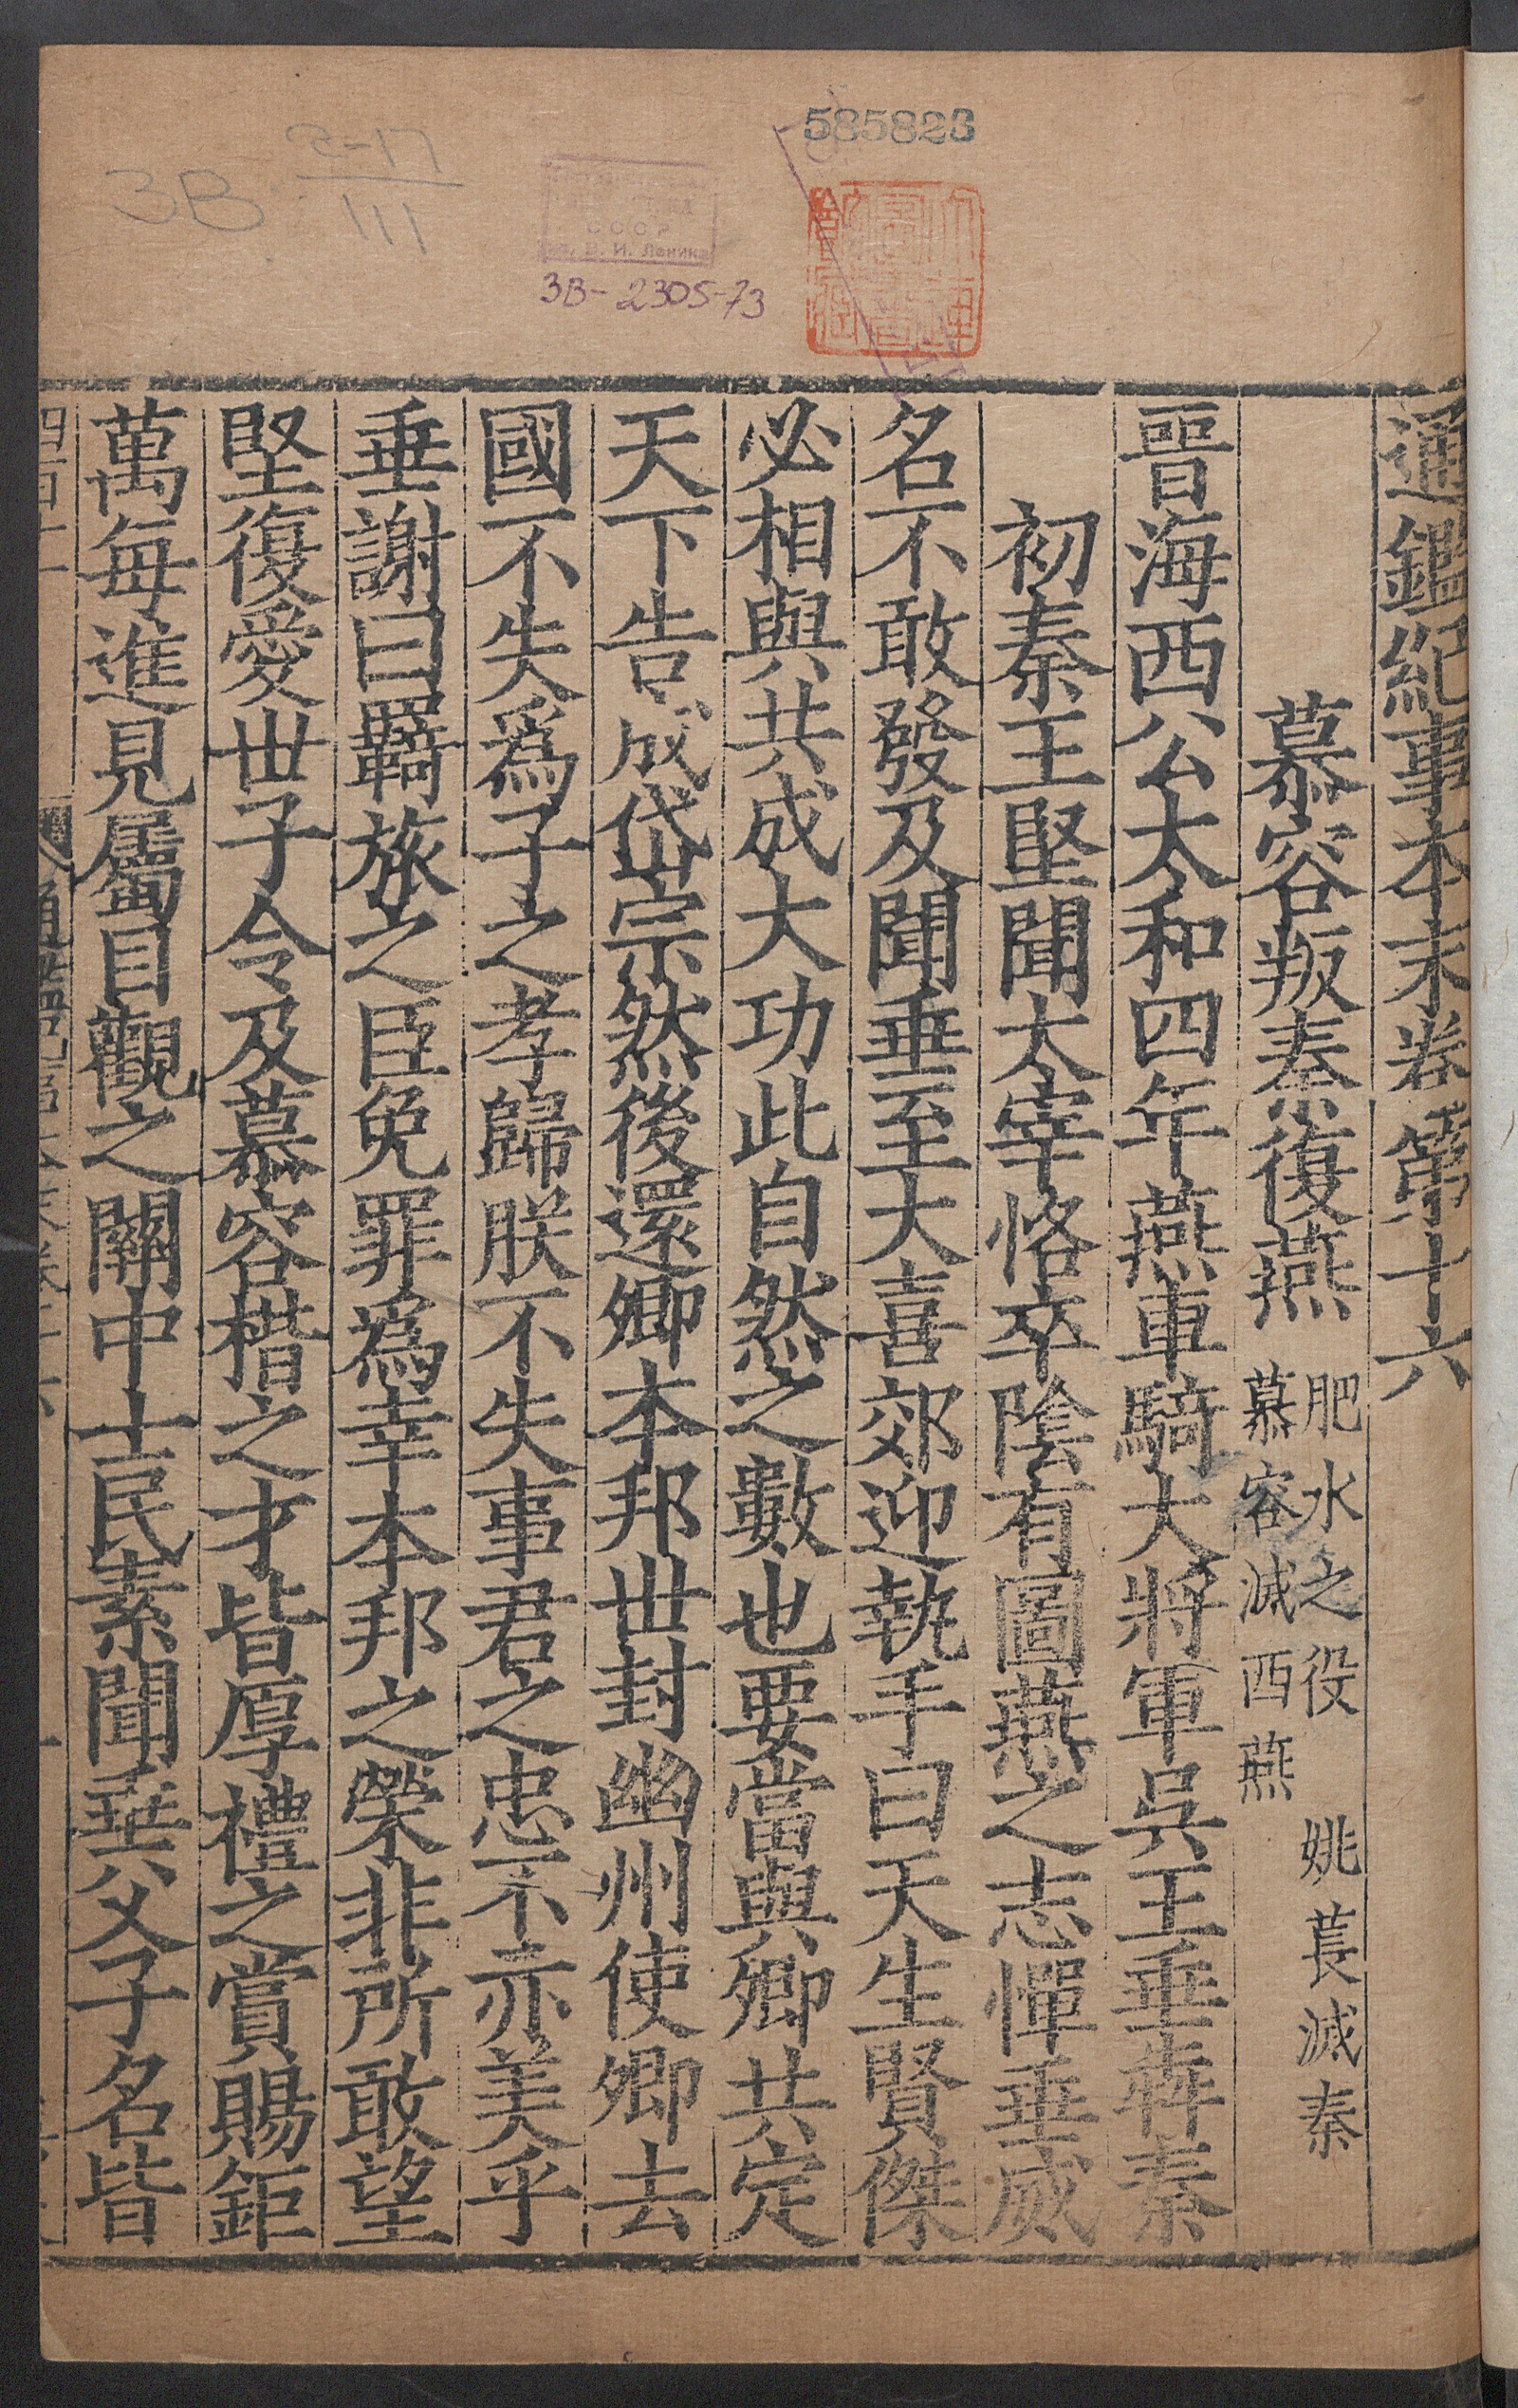 585823
З-17
ЗВ-
III
СССР
В. И. Ленина
ЗВ-2305-73
通鑑紀事本末卷第十六
慕容叛秦復燕 肥水之役 姚萇滅秦
慕容滅西燕
晉海西公太和四年燕車騎大將軍吳王垂犇秦
初秦王堅聞太宰恪卒陰有圖燕之志憚垂威
名不敢發及聞垂至大喜郊迎執手曰天生賢傑
必相與共成大功此自然之數也要當與卿共定
天下告成岱宗然後還卿本邦世封幽州使卿去
國不失爲子之孝歸朕不失事君之忠不亦美乎
垂謝曰羇旅之臣免罪爲幸本邦之榮非所敢望
堅復愛世子令及慕容楷之才皆厚禮之賞賜鉅
萬每進見屬目觀之關中士民素聞垂父子名皆